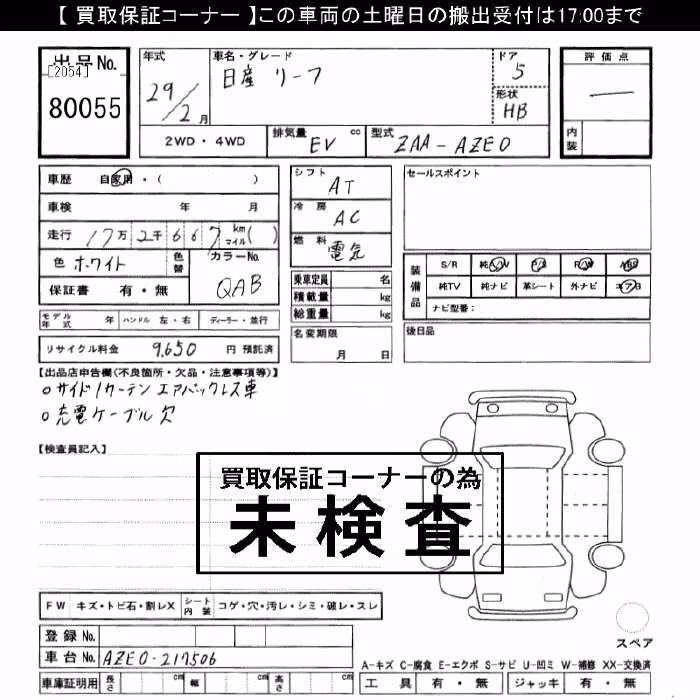 【 買取保証コーナー 】この車両の土曜日の搬出受付は17:00まで
出品No.
[2054]
80055
年式
29/2月
車名・グレード
日産 リーフ
ドア
5
形状
HB
評価点
―
内装
2WD・4WD
排気量 EV cc
型式 ZAA-AZE0
車歴 自家用・( )
車検 年 月
走行 17万 2千 6 6 7 km マイル ( )
色 ホワイト 色替
カラーNo.
QAB
保証書 有・無
モデル年式 年 ハンドル 左・右 ディーラー・並行
リサイクル料金 9,650 円 預託済
シフト
AT
冷房
AC
燃料
電気
乗車定員 名
積載量 kg
総重量 kg
名変期限
月 日
セールスポイント
装備品
S/R 純 P/S P/W ABS
純TV 純ナビ 革シート 外ナビ エアB
ナビ型番:
後日品
【出品店申告欄(不良箇所・欠品・注意事項等)】
○サイド/カーテン エアバックレス車
○充電ケーブル欠
【検査員記入】
買取保証コーナーの為
未検査
FW キズ・トビ石・割レX シート内装 コゲ・穴・汚レ・シミ・破レ・スレ
登録No.
車台No. AZE0-217506
車庫証明用 長さ cm 幅 cm 高さ cm
スペア
A-キズ C-腐食 E-エクボ S-サビ U-凹ミ W-補修 XX-交換済
工具 有・無 ジャッキ 有・無